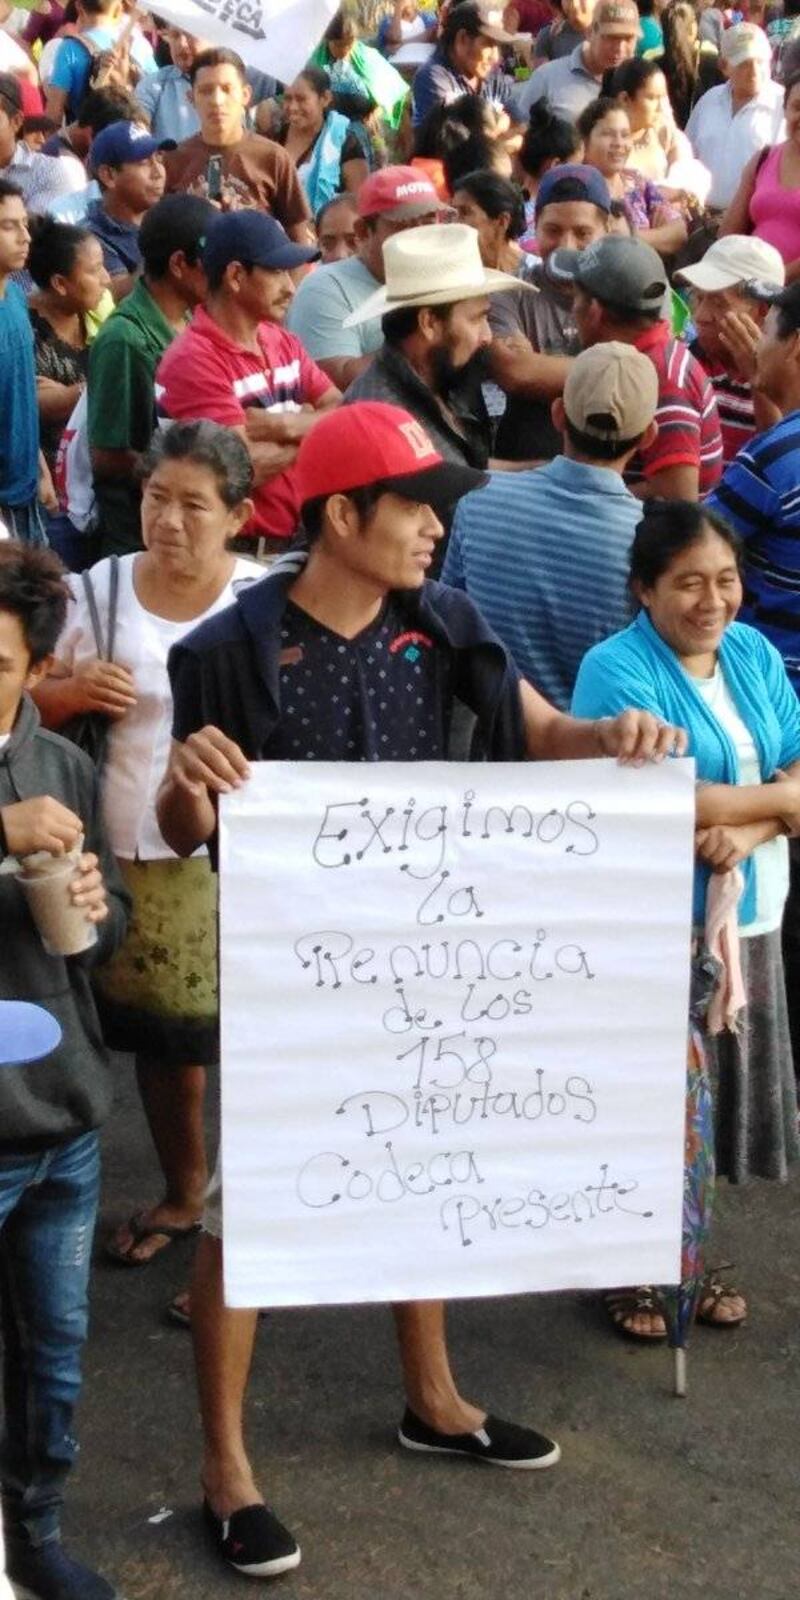 Exigimos
la
Renuncia
de los
158
Diputados
Codeca
presente